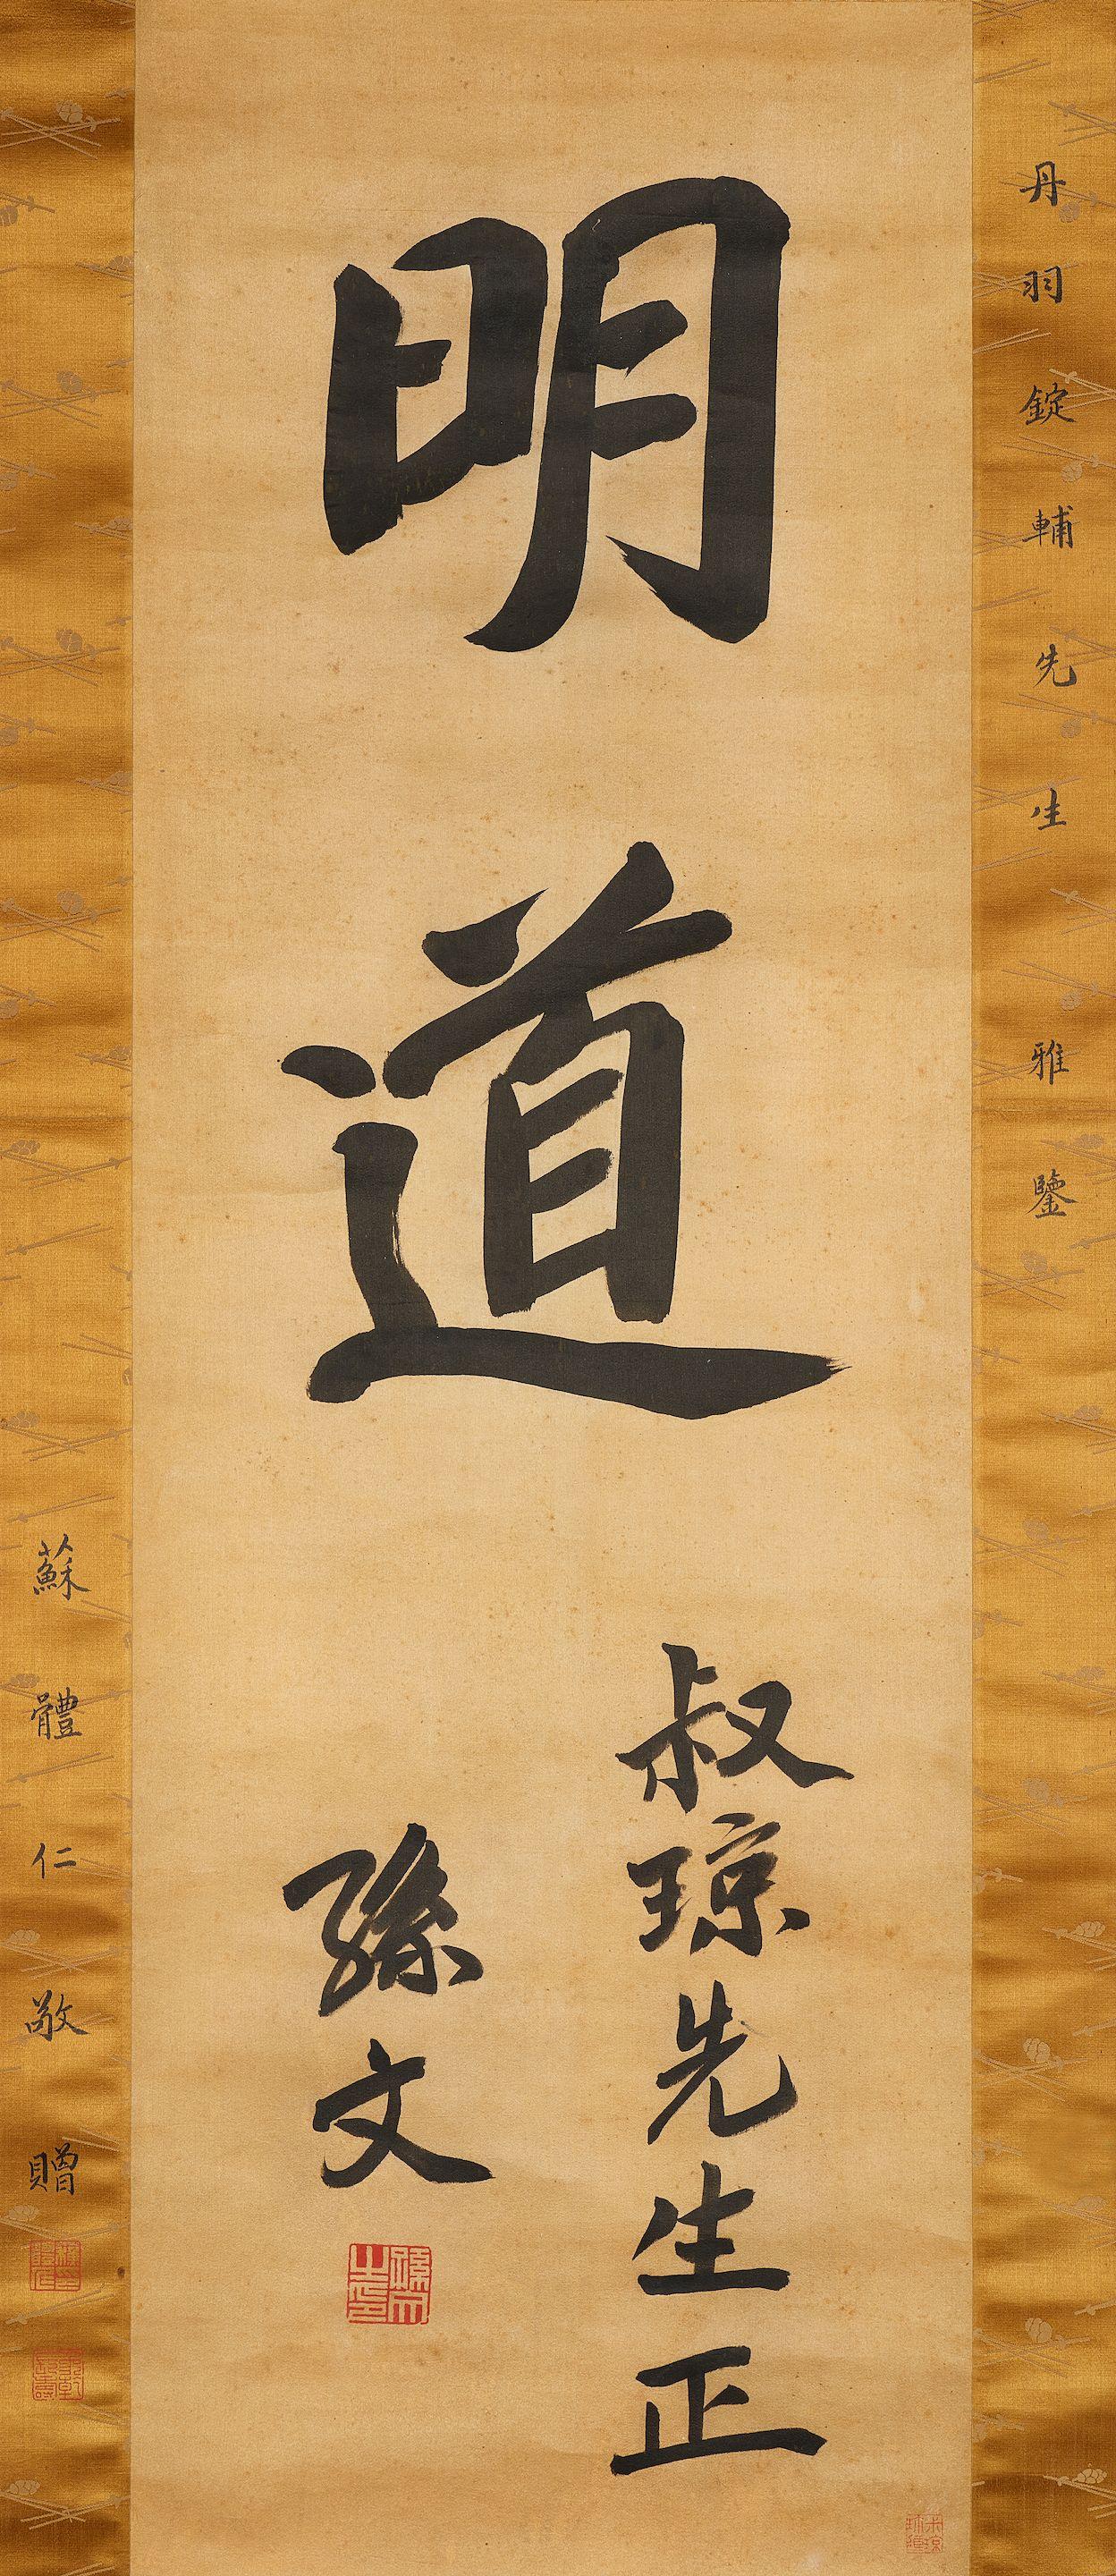 丹羽錠輔先生雅鑒
明道
叔琼先生正
孫文
孫文之印
蘇體仁敬贈